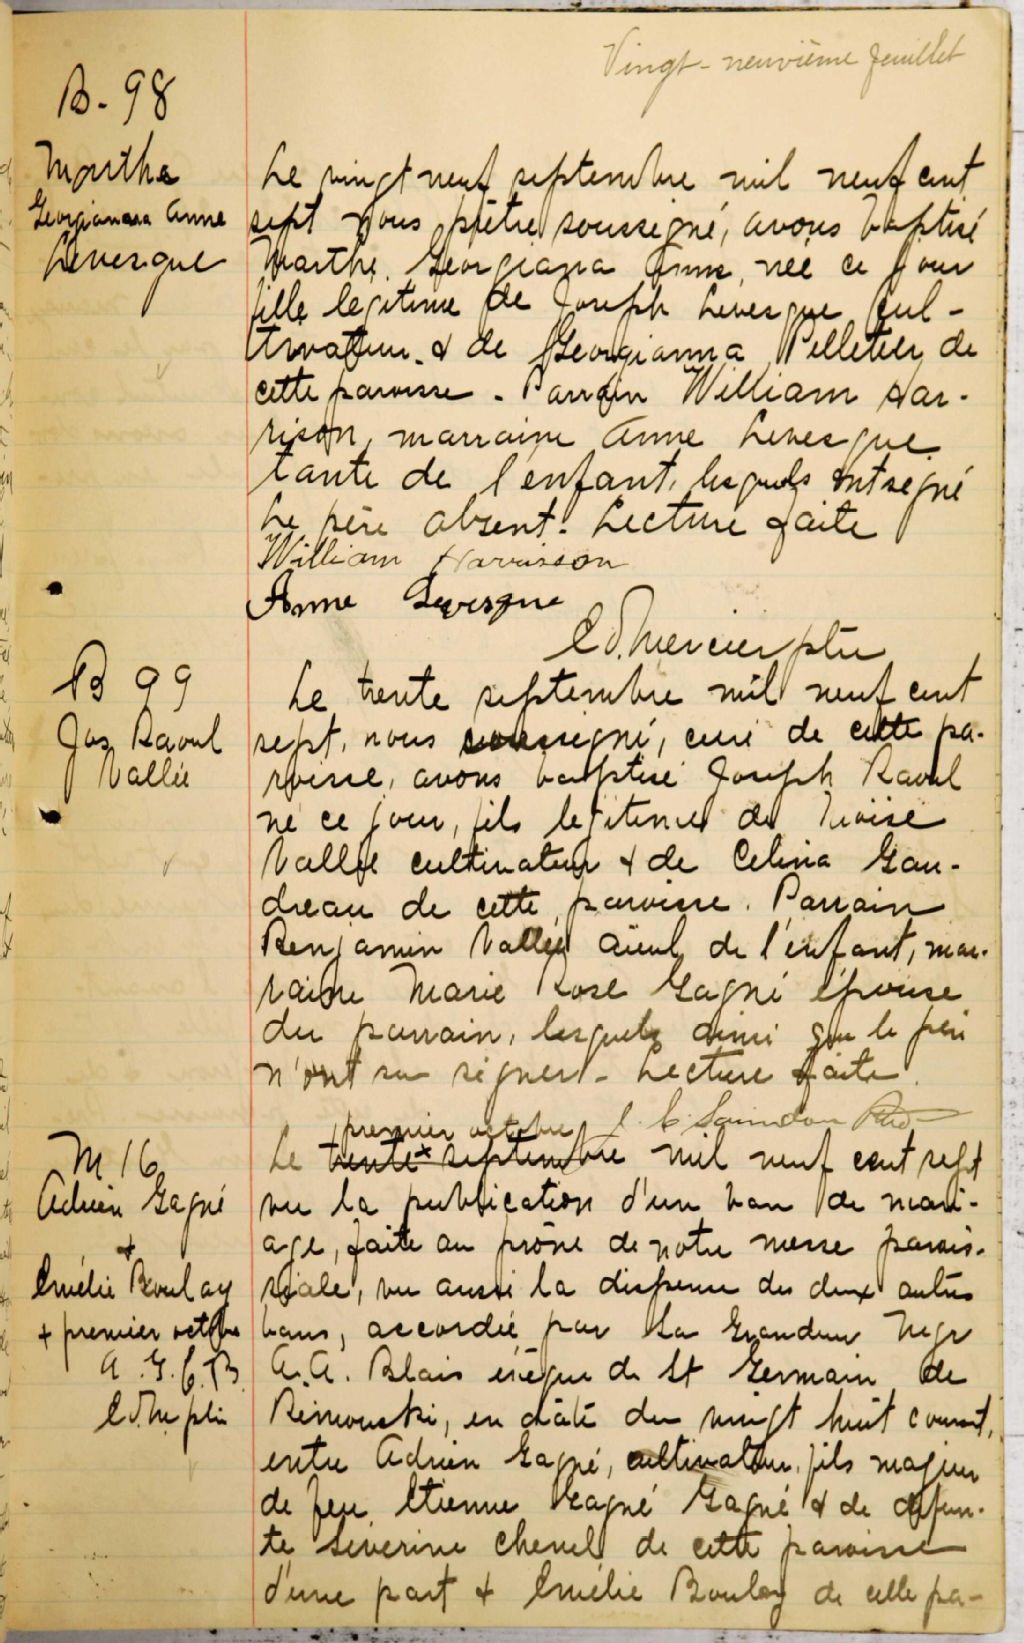 Vingt-neuvième feuillet
B-98
Marthe
Georgianna Anne
Levesque
Le vingt neuf septembre mil neuf cent
sept nous prêtre soussigné, avons baptisé
Marthe Georgiana Anne née ce jour
fille legitime de Joseph Levesque cul-
tivateur & de Georgianna Pelletier de
cette paroisse - Parrain William Har-
rison, marraine Anne Levesque
tante de l'enfant, lesquels ont signé
Le père absent. Lecture faite
William Harrisson
Anne Levesque
C. O. Mercier ptre
B 99
Jos Raoul
Vallée
Le trente septembre mil neuf cent
sept, nous soussigné, curé de cette pa-
roisse, avons baptisé Joseph Raoul
né ce jour, fils legitime de Moïse
Vallée cultivateur & de Celina Gau-
dreau de cette paroisse. Parrain
Benjamin Vallée aïeul de l'enfant, mar-
raine Marie Rose Gagné épouse
du parrain, lesquels ainsi que le père
n'ont su signer - Lecture faite.
J. C. Saindon Ptre
M 16
Adrien Gagné
+
Emélie Boulay
+ premier octobre
A. G. E. B.
premier octobre
Le trente + septembre mil neuf cent sept
vu la publication d'un ban de mari-
age, faite au prône de notre messe parois-
siale, vu aussi la dispense des deux autres
bans, accordée par Sa Grandeur Mgr
A. A. Blais évêque de St Germain de
Rimouski, en date du vingt huit courant,
entre Adrien Gagné, cultivateur, fils majeur
de feu Etienne Gagné Gagné & de défun-
te Severine Chenel de cette paroisse
d'une part & Emélie Boulay de cette pa-